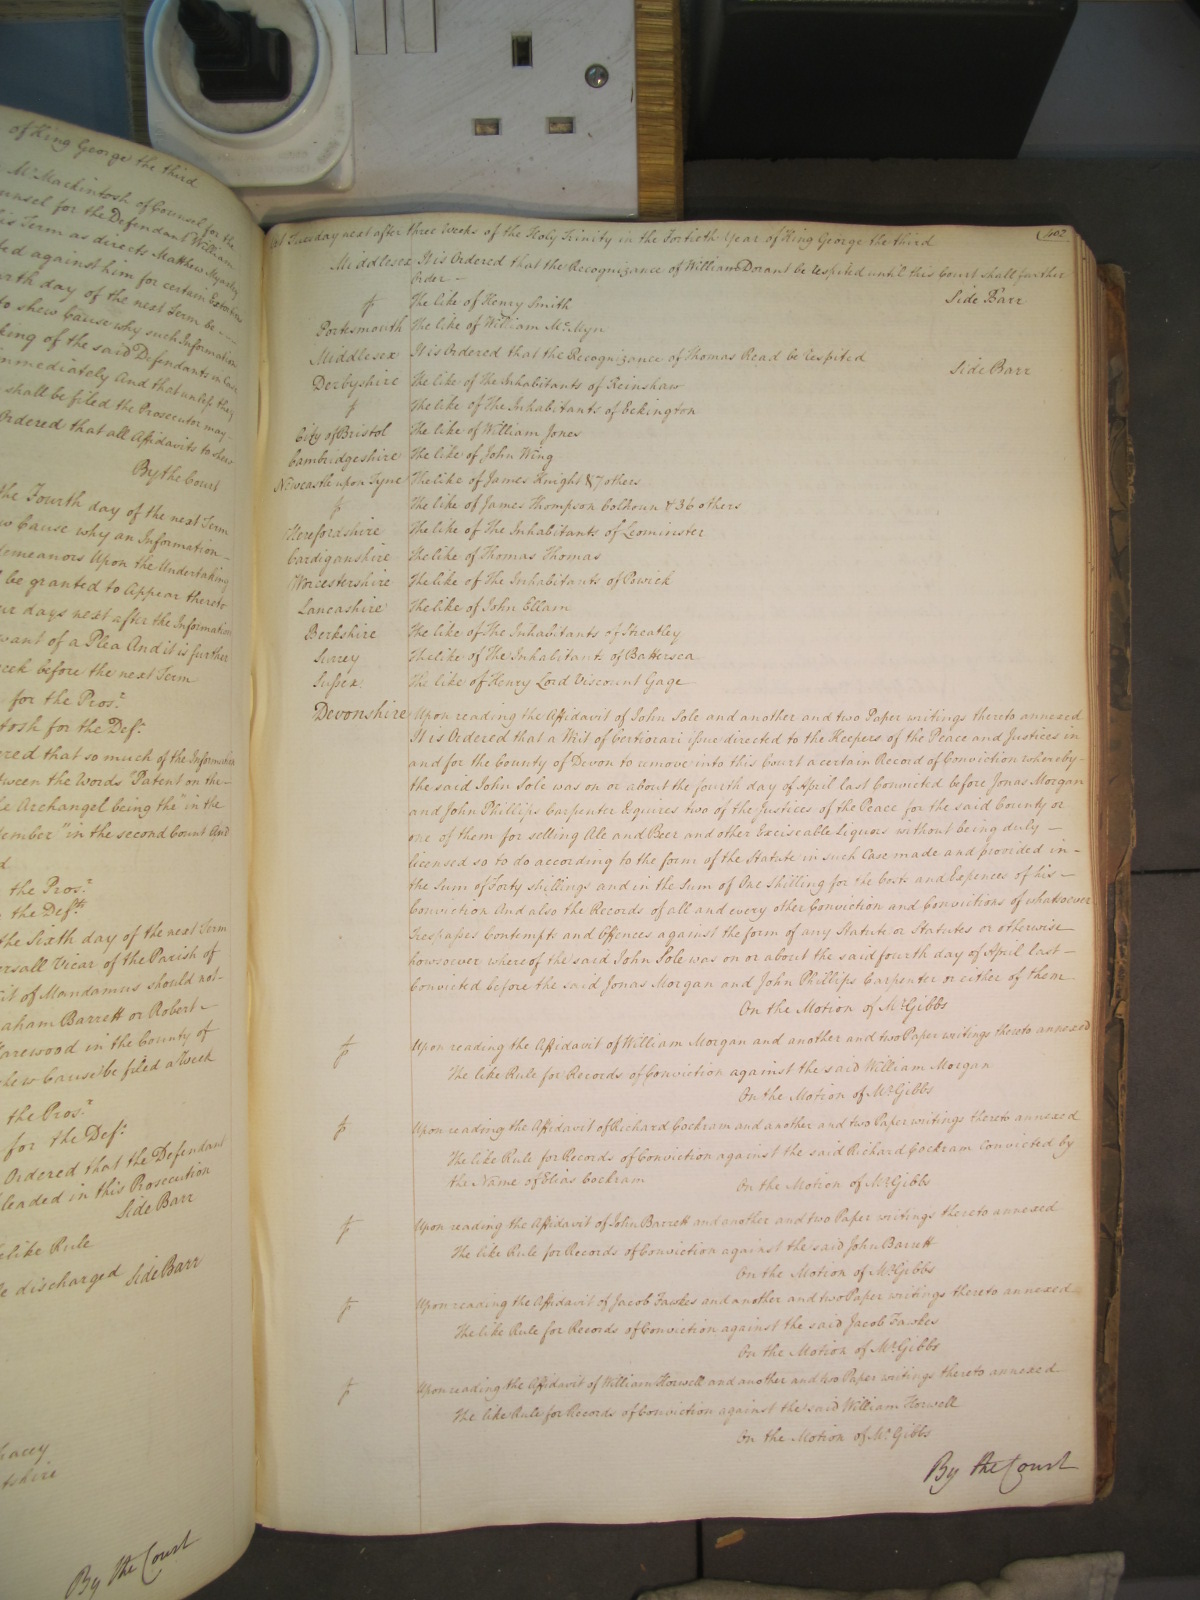 of King George the third
Mr Mackintosh of Counsel for the
unsel for the Defendant William
is Term as directs Matthew
ed against him for certain
rth day of the next Term be
to shew Cause why such Information
king of the said Defendants in Case
mmediately And that unless they
shall be filed the Prosecutor may
Ordered that all Affidavits to shew
By the Court
the Fourth day of the next Term
w Cause why an Information
demeanors Upon the Undertaking
be granted to Appear thereto
ur days next after the Information
want of a Plea And it is further
eek before the next Term
for the Prosr
tosh for the Deft
red that so much of the Information
tween the Words "Patent on the
e Archangel being the" in the
ember" in the second Count And
d
the Prosr
the Defts
the Sixth day of the next Term
ersall Vicar of the Parish of
it of Mandamus should not
aham Barrett or Robert
arewood in the County of
shew Cause be filed a Week
the Prosr
for the Deft
Ordered that the Defendant
leaded in this Prosecution
Side Barr
like Rule
e discharged Side Barr
acey
tshire
By the Court
At Tuesday next after three Weeks of the Holy Trinity in the Fortieth Year of King George the third 402
Middlesex It is Ordered that the Recognizance of William Dorant be respited until this Court shall further
Order - Side Barr
The like of Henry Smith
Portesmouth The like of William
Middlesex It is Ordered that the Recognizance of Thomas Read be respited Side Barr
Derbyshire The like of The Inhabitants of Reinshaw
The like of The Inhabitants of Eckington
City of Bristol The like of William Jones
Cambridgeshire The like of John Wing
Newcastle upon Tyne The like of James Knight & 7 others
The like of James Thompson Colhoun & 36 others
Herefordshire The like of The Inhabitants of Leominster
Cardiganshire The like of Thomas Thomas
Worcestershire The like of The Inhabitants of Powick
Lancashire The like of John Ellam
Berkshire The like of The Inhabitants of Streatley
Surrey The like of The Inhabitants of Battersea
Sussex The like of Henry Lord Viscount Gage
Devonshire Upon reading the Affidavit of John Sole and another and two Paper writings thereto annexed
It is Ordered that a Writ of Certiorari issue directed to the Keepers of the Peace and Justices in
and for the County of Devon to remove into this Court a certain Record of Conviction whereby
the said John Sole was on or about the fourth day of April last Convicted before Jonas Morgan
and John Phillips Carpenter Esquires two of the Justices of the Peace for the said County or
one of them for selling Ale and Beer and other Exciseable Liquors without being duly
licensed so to do according to the form of the Statute in such Case made and provided in
the Sum of Forty shillings and in the Sum of One Shilling for the Costs and Expences of his
Conviction And also the Records of all and every other Conviction and Convictions of whatsoever
Trespasses Contempts and Offences against the form of any Statute or Statutes or otherwise
howsoever whereof the said John Sole was on or about the said fourth day of April last
Convicted before the said Jonas Morgan and John Phillips Carpenter or either of them
On the Motion of Mr Gibbs
Upon reading the Affidavit of William Morgan and another and two Paper writings thereto annexed
The like Rule for Records of Conviction against the said William Morgan
On the Motion of Mr Gibbs
Upon reading the Affidavit of Richard Cockram and another and two Paper writings thereto annexed
The like Rule for Records of Conviction against the said Richard Cockram Convicted by
the Name of Elias Cockram On the Motion of Mr Gibbs
Upon reading the Affidavit of John Barrett and another and two Paper writings thereto annexed
The like Rule for Records of Conviction against the said John Barrett
On the Motion of Mr Gibbs
Upon reading the Affidavit of Jacob Fawkes and another and two Paper writings thereto annexed
The like Rule for Records of Conviction against the said Jacob Fawkes
On the Motion of Mr Gibbs
Upon reading the Affidavit of William Horwell and another and two Paper writings thereto annexed
The like Rule for Records of Conviction against the said William Horwell
On the Motion of Mr Gibbs
By the Court